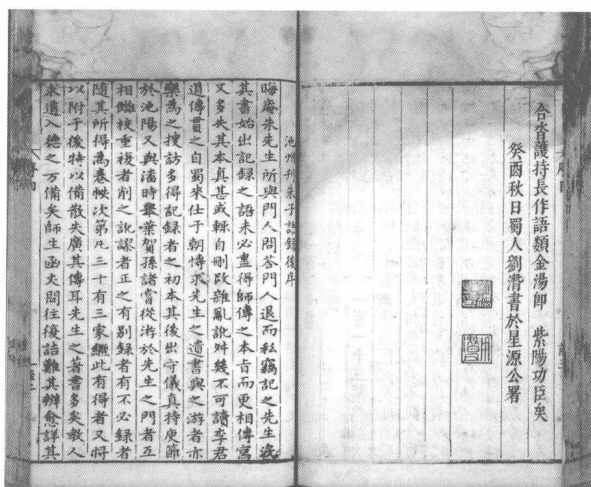 合沓護持長作語類金湯即 紫陽功臣矣
癸酉秋日蜀人劉潸書於星源公署
池州刋朱子語錄後序
晦庵朱先生所與門人問荅門人退而私竊記之先生没
其書始出記錄之語未必盡得師傳之本旨而更相傳寫
又多失其本真甚或輒自刪改雜亂訛舛幾不可讀李君
道傳貫之自蜀來仕于朝博求先生之遺書與之游者亦
樂為之搜訪多得記錄者之初本其後出守儀真持庾節
於池陽又與潘時舉葉賀孫諸嘗從游於先生之門者互
相讎校重複者削之訛謬者正之有別錄者有不必錄者
隨其所得為卷帙次第凡三十有三家繼此有得者又將
以附于後特以備散失廣其傳耳先生之著書多矣教人
求道入德之方備矣師生函丈間往復詰難其辨愈詳其